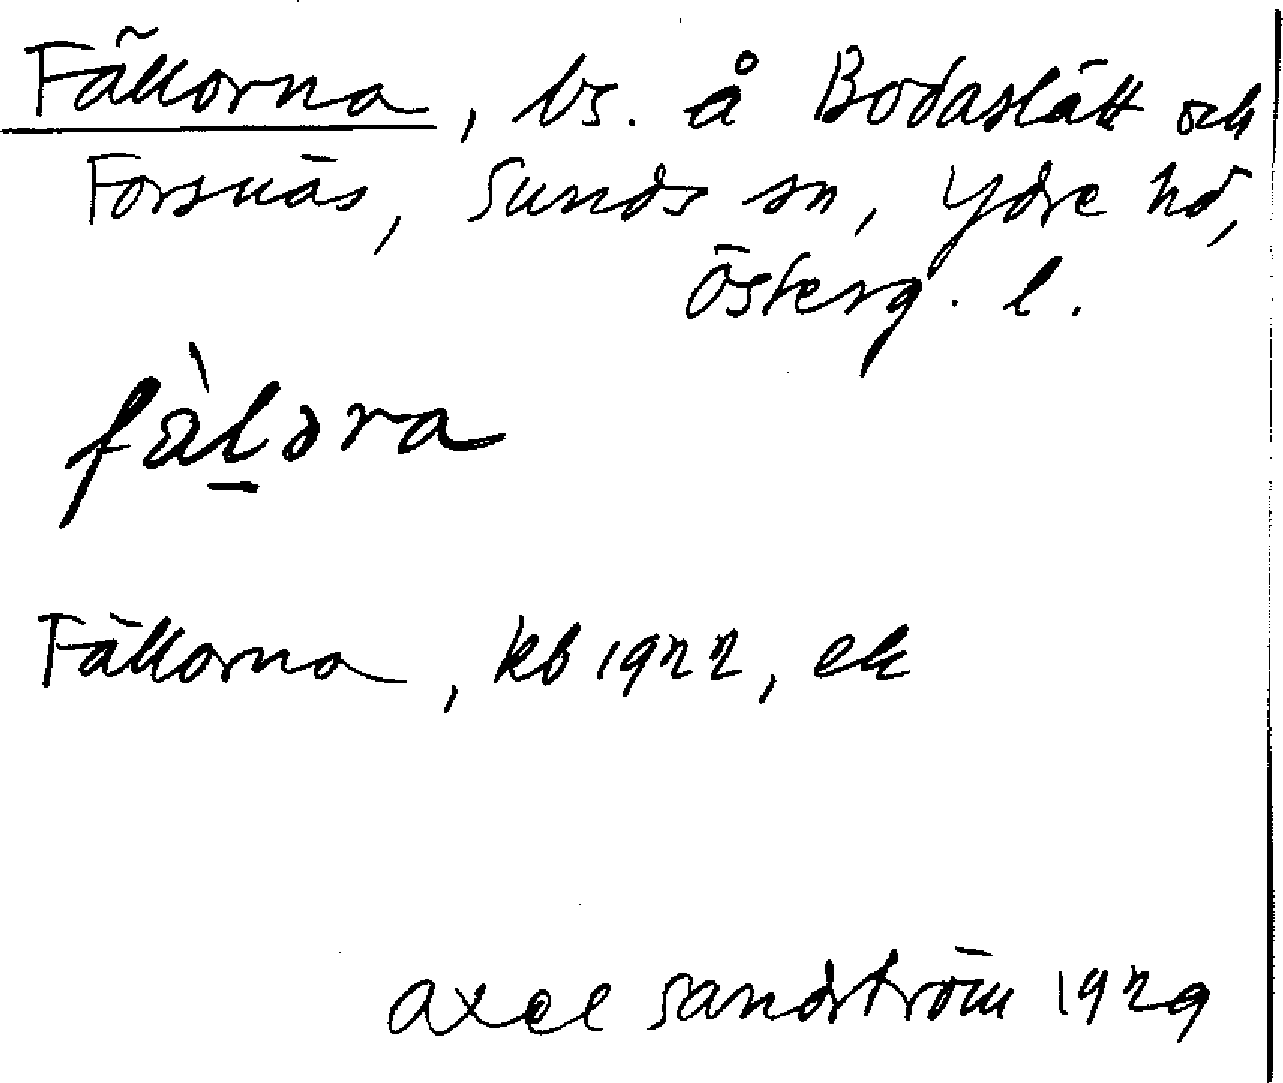 Fällorna, bs. å Bodaslätt och
Forsnäs, Sunds sn, Ydre hd,
Österg. l.
fàlǝra
Fällorna, kb 1922, ek
Axel Sandström 1929